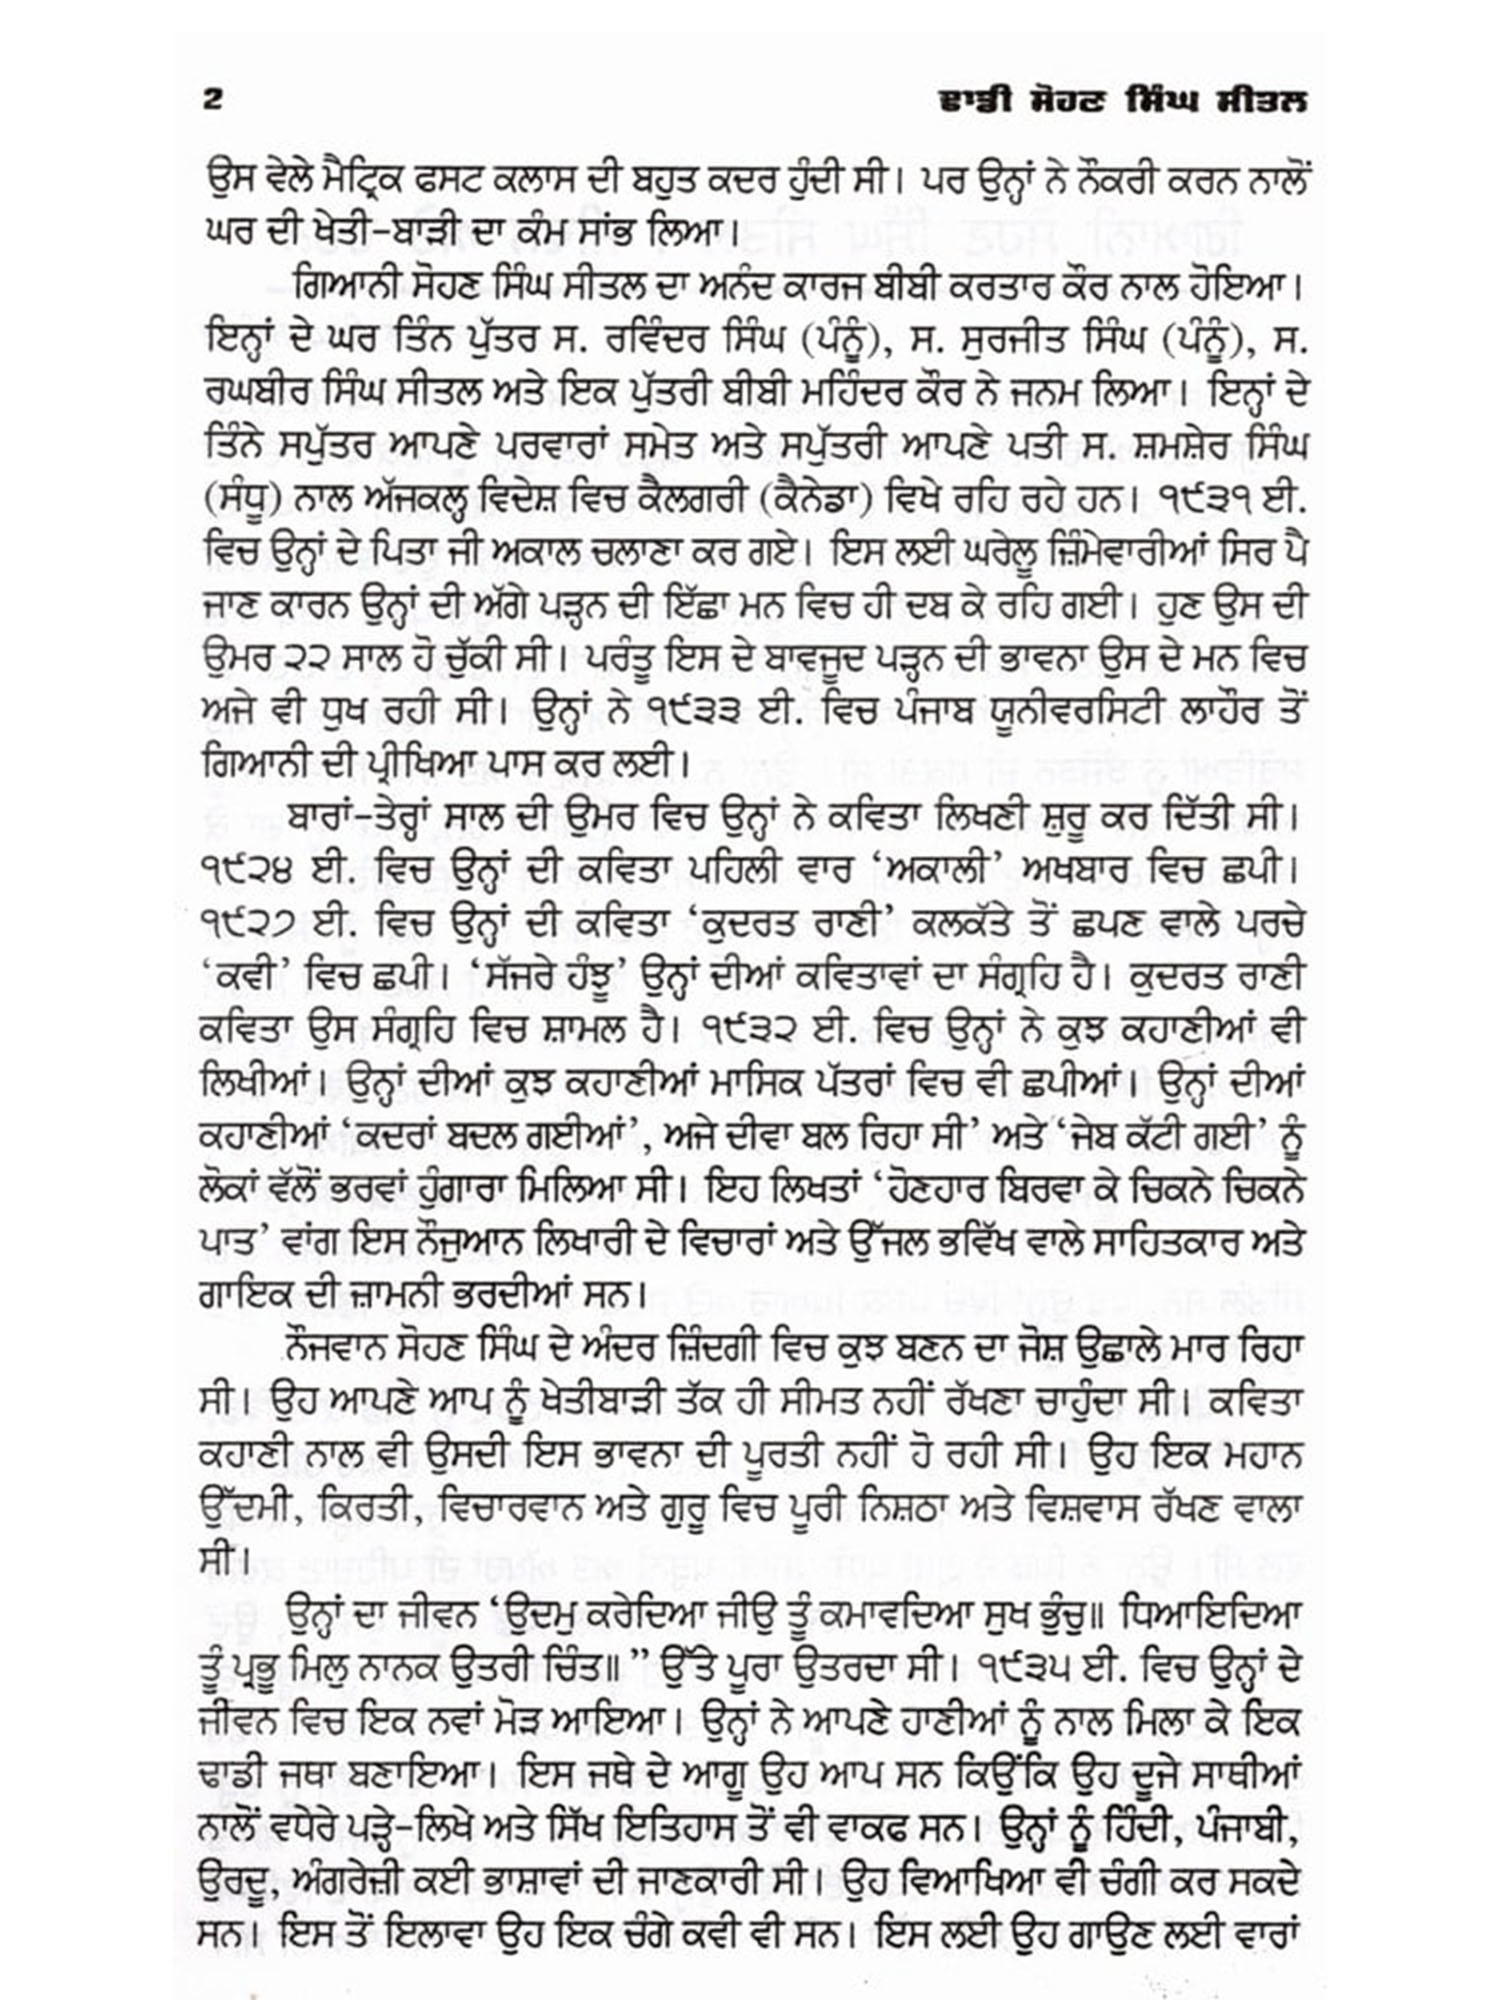 2 ਢਾਡੀ ਸੋਹਣ ਸਿੰਘ ਸੀਤਲ
ਉਸ ਵੇਲੇ ਮੈਟ੍ਰਿਕ ਫਸਟ ਕਲਾਸ ਦੀ ਬਹੁਤ ਕਦਰ ਹੁੰਦੀ ਸੀ। ਪਰ ਉਨ੍ਹਾਂ ਨੇ ਨੌਕਰੀ ਕਰਨ ਨਾਲੋਂ
ਘਰ ਦੀ ਖੇਤੀ-ਬਾੜੀ ਦਾ ਕੰਮ ਸਾਂਭ ਲਿਆ।
ਗਿਆਨੀ ਸੋਹਣ ਸਿੰਘ ਸੀਤਲ ਦਾ ਅਨੰਦ ਕਾਰਜ ਬੀਬੀ ਕਰਤਾਰ ਕੌਰ ਨਾਲ ਹੋਇਆ।
ਇਨ੍ਹਾਂ ਦੇ ਘਰ ਤਿੰਨ ਪੁੱਤਰ ਸ. ਰਵਿੰਦਰ ਸਿੰਘ (ਪੰਨੂੰ), ਸ. ਸੁਰਜੀਤ ਸਿੰਘ (ਪੰਨੂੰ), ਸ.
ਰਘਬੀਰ ਸਿੰਘ ਸੀਤਲ ਅਤੇ ਇਕ ਪੁੱਤਰੀ ਬੀਬੀ ਮਹਿੰਦਰ ਕੌਰ ਨੇ ਜਨਮ ਲਿਆ। ਇਨ੍ਹਾਂ ਦੇ
ਤਿੰਨੇ ਸਪੁੱਤਰ ਆਪਣੇ ਪਰਵਾਰਾਂ ਸਮੇਤ ਅਤੇ ਸਪੁੱਤਰੀ ਆਪਣੇ ਪਤੀ ਸ. ਸ਼ਮਸ਼ੇਰ ਸਿੰਘ
(ਸੰਧੂ) ਨਾਲ ਅੱਜਕਲ੍ਹ ਵਿਦੇਸ਼ ਵਿਚ ਕੈਲਗਰੀ (ਕੈਨੇਡਾ) ਵਿਖੇ ਰਹਿ ਰਹੇ ਹਨ। ੧੯੩੧ ਈ.
ਵਿਚ ਉਨ੍ਹਾਂ ਦੇ ਪਿਤਾ ਜੀ ਅਕਾਲ ਚਲਾਣਾ ਕਰ ਗਏ। ਇਸ ਲਈ ਘਰੇਲੂ ਜ਼ਿੰਮੇਵਾਰੀਆਂ ਸਿਰ ਪੈ
ਜਾਣ ਕਾਰਨ ਉਨ੍ਹਾਂ ਦੀ ਅੱਗੇ ਪੜ੍ਹਨ ਦੀ ਇੱਛਾ ਮਨ ਵਿਚ ਹੀ ਦਬ ਕੇ ਰਹਿ ਗਈ। ਹੁਣ ਉਸ ਦੀ
ਉਮਰ ੨੨ ਸਾਲ ਹੋ ਚੁੱਕੀ ਸੀ। ਪਰੰਤੂ ਇਸ ਦੇ ਬਾਵਜੂਦ ਪੜ੍ਹਨ ਦੀ ਭਾਵਨਾ ਉਸ ਦੇ ਮਨ ਵਿਚ
ਅਜੇ ਵੀ ਧੁਖ ਰਹੀ ਸੀ। ਉਨ੍ਹਾਂ ਨੇ ੧੯੩੩ ਈ. ਵਿਚ ਪੰਜਾਬ ਯੂਨੀਵਰਸਿਟੀ ਲਾਹੌਰ ਤੋਂ
ਗਿਆਨੀ ਦੀ ਪ੍ਰੀਖਿਆ ਪਾਸ ਕਰ ਲਈ।
ਬਾਰਾਂ-ਤੇਰ੍ਹਾਂ ਸਾਲ ਦੀ ਉਮਰ ਵਿਚ ਉਨ੍ਹਾਂ ਨੇ ਕਵਿਤਾ ਲਿਖਣੀ ਸ਼ੁਰੂ ਕਰ ਦਿੱਤੀ ਸੀ।
੧੯੨੪ ਈ. ਵਿਚ ਉਨ੍ਹਾਂ ਦੀ ਕਵਿਤਾ ਪਹਿਲੀ ਵਾਰ ‘ਅਕਾਲੀ’ ਅਖਬਾਰ ਵਿਚ ਛਪੀ।
੧੯੨੭ ਈ. ਵਿਚ ਉਨ੍ਹਾਂ ਦੀ ਕਵਿਤਾ ‘ਕੁਦਰਤ ਰਾਣੀ’ ਕਲਕੱਤੇ ਤੋਂ ਛਪਣ ਵਾਲੇ ਪਰਚੇ
‘ਕਵੀ’ ਵਿਚ ਛਪੀ। ‘ਸੱਜਰੇ ਹੰਝੂ’ ਉਨ੍ਹਾਂ ਦੀਆਂ ਕਵਿਤਾਵਾਂ ਦਾ ਸੰਗ੍ਰਹਿ ਹੈ। ਕੁਦਰਤ ਰਾਣੀ
ਕਵਿਤਾ ਉਸ ਸੰਗ੍ਰਹਿ ਵਿਚ ਸ਼ਾਮਲ ਹੈ। ੧੯੩੨ ਈ. ਵਿਚ ਉਨ੍ਹਾਂ ਨੇ ਕੁਝ ਕਹਾਣੀਆਂ ਵੀ
ਲਿਖੀਆਂ। ਉਨ੍ਹਾਂ ਦੀਆਂ ਕੁਝ ਕਹਾਣੀਆਂ ਮਾਸਿਕ ਪੱਤਰਾਂ ਵਿਚ ਵੀ ਛਪੀਆਂ। ਉਨ੍ਹਾਂ ਦੀਆਂ
ਕਹਾਣੀਆਂ ‘ਕਦਰਾਂ ਬਦਲ ਗਈਆਂ’, ਅਜੇ ਦੀਵਾ ਬਲ ਰਿਹਾ ਸੀ’ ਅਤੇ ‘ਜੇਬ ਕੱਟੀ ਗਈ’ ਨੂੰ
ਲੋਕਾਂ ਵੱਲੋਂ ਭਰਵਾਂ ਹੁੰਗਾਰਾ ਮਿਲਿਆ ਸੀ। ਇਹ ਲਿਖਤਾਂ ‘ਹੋਣਹਾਰ ਬਿਰਵਾ ਕੇ ਚਿਕਨੇ ਚਿਕਨੇ
ਪਾਤ’ ਵਾਂਗ ਇਸ ਨੌਜੁਆਨ ਲਿਖਾਰੀ ਦੇ ਵਿਚਾਰਾਂ ਅਤੇ ਉੱਜਲ ਭਵਿੱਖ ਵਾਲੇ ਸਾਹਿਤਕਾਰ ਅਤੇ
ਗਾਇਕ ਦੀ ਜ਼ਾਮਨੀ ਭਰਦੀਆਂ ਸਨ।
ਨੌਜਵਾਨ ਸੋਹਣ ਸਿੰਘ ਦੇ ਅੰਦਰ ਜ਼ਿੰਦਗੀ ਵਿਚ ਕੁਝ ਬਣਨ ਦਾ ਜੋਸ਼ ਉਛਾਲੇ ਮਾਰ ਰਿਹਾ
ਸੀ। ਉਹ ਆਪਣੇ ਆਪ ਨੂੰ ਖੇਤੀਬਾੜੀ ਤੱਕ ਹੀ ਸੀਮਤ ਨਹੀਂ ਰੱਖਣਾ ਚਾਹੁੰਦਾ ਸੀ। ਕਵਿਤਾ
ਕਹਾਣੀ ਨਾਲ ਵੀ ਉਸਦੀ ਇਸ ਭਾਵਨਾ ਦੀ ਪੂਰਤੀ ਨਹੀਂ ਹੋ ਰਹੀ ਸੀ। ਉਹ ਇਕ ਮਹਾਨ
ਉੱਦਮੀ, ਕਿਰਤੀ, ਵਿਚਾਰਵਾਨ ਅਤੇ ਗੁਰੂ ਵਿਚ ਪੂਰੀ ਨਿਸ਼ਠਾ ਅਤੇ ਵਿਸ਼ਵਾਸ ਰੱਖਣ ਵਾਲਾ
ਸੀ।
ਉਨ੍ਹਾਂ ਦਾ ਜੀਵਨ ‘ਉਦਮੁ ਕਰੇਦਿਆ ਜੀਉ ਤੂੰ ਕਮਾਵਦਿਆ ਸੁਖ ਭੁੰਚੁ॥ ਧਿਆਇਦਿਆ
ਤੂੰ ਪ੍ਰਭੂ ਮਿਲੁ ਨਾਨਕ ਉਤਰੀ ਚਿੰਤ॥ ” ਉੱਤੇ ਪੂਰਾ ਉਤਰਦਾ ਸੀ। ੧੯੩੫ ਈ. ਵਿਚ ਉਨ੍ਹਾਂ ਦੇ
ਜੀਵਨ ਵਿਚ ਇਕ ਨਵਾਂ ਮੋੜ ਆਇਆ। ਉਨ੍ਹਾਂ ਨੇ ਆਪਣੇ ਹਾਣੀਆਂ ਨੂੰ ਨਾਲ ਮਿਲਾ ਕੇ ਇਕ
ਢਾਡੀ ਜਥਾ ਬਣਾਇਆ। ਇਸ ਜਥੇ ਦੇ ਆਗੂ ਉਹ ਆਪ ਸਨ ਕਿਉਂਕਿ ਉਹ ਦੂਜੇ ਸਾਥੀਆਂ
ਨਾਲੋਂ ਵਧੇਰੇ ਪੜ੍ਹੇ-ਲਿਖੇ ਅਤੇ ਸਿੱਖ ਇਤਿਹਾਸ ਤੋਂ ਵੀ ਵਾਕਫ ਸਨ। ਉਨ੍ਹਾਂ ਨੂੰ ਹਿੰਦੀ, ਪੰਜਾਬੀ,
ਉਰਦੂ, ਅੰਗਰੇਜ਼ੀ ਕਈ ਭਾਸ਼ਾਵਾਂ ਦੀ ਜਾਣਕਾਰੀ ਸੀ। ਉਹ ਵਿਆਖਿਆ ਵੀ ਚੰਗੀ ਕਰ ਸਕਦੇ
ਸਨ। ਇਸ ਤੋਂ ਇਲਾਵਾ ਉਹ ਇਕ ਚੰਗੇ ਕਵੀ ਵੀ ਸਨ। ਇਸ ਲਈ ਉਹ ਗਾਉਣ ਲਈ ਵਾਰਾਂ